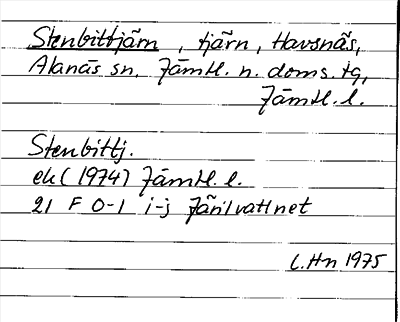 Stenbittjärn, tjärn, Havsnäs,
Alanäs sn, Jämtl. n. doms. tg,
Jämtl. l.
Stenbittj.
ek (1974) Jämtl. l.
21 F 0-1 i-j Järilvattnet
C.Hn 1975